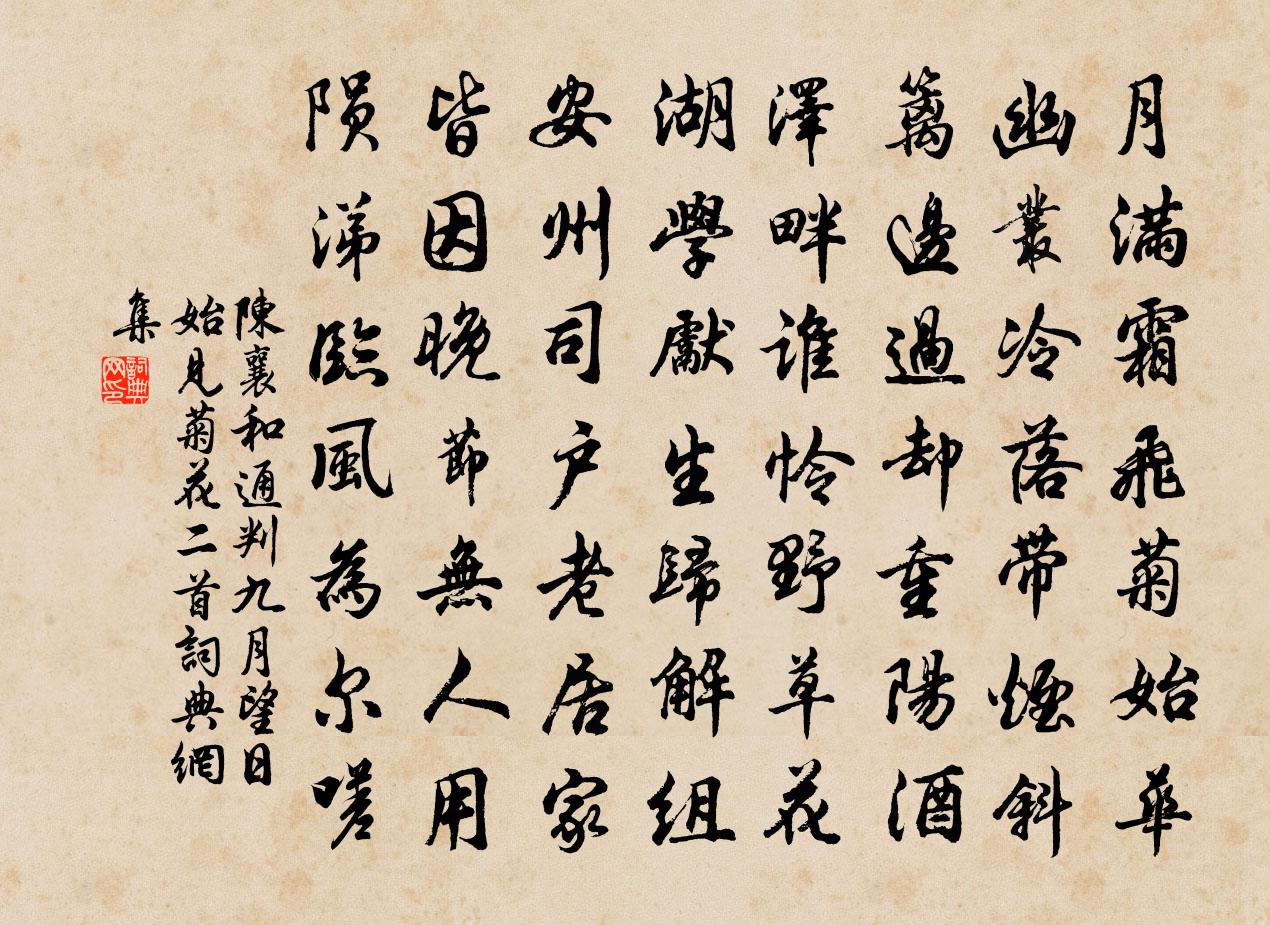 月滿霜飛菊始華
幽叢冷落帶煙斜
籬邊過却重陽酒
澤畔誰怜野草花
湖學獻生歸解組
安州司户老居家
皆因晚節無人用
隕涕臨風為尔嗟
陳襄和通判九月望日
始見菊花二首詞典網
集
詞典
网印